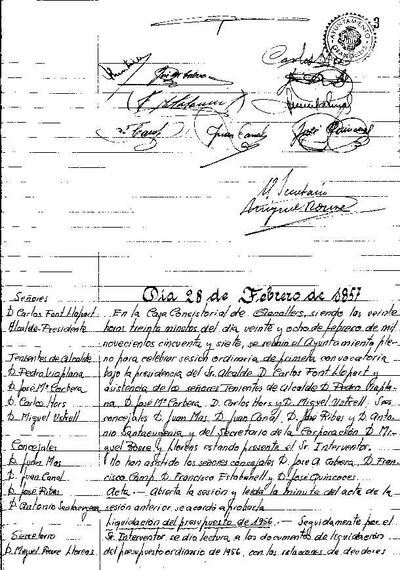 3
AYUNTAMIENTO
Carlos
Juan Canal
José
El Secretario
Miguel Roure
Dia 28 de Febrero de 1957
Señores
D. Carlos Font Llopart
Alcalde-Presidente
Tenientes de Alcalde
D. Pedro Viaplana
D. José Mª Corbera
D. Carlos Hors
D. Miguel Votrell
Concejales
D. Juan Mas
D. Juan Canal
D. José Ribas
D. Antonio Santaeugenia
Secretario
D. Miguel Roure Llorens
En la Casa Consistorial de Granollers, siendo las veinte
horas treinta minutos del dia veinte y ocho de febrero de mil
novecientos cincuenta y siete, se reunió el Ayuntamiento ple-
no para celebrar sesión ordinaria de primera convocatoria
bajo la presidencia del Sr. Alcalde D. Carlos Font Llopart y
asistencia de los señores Tenientes de Alcalde D. Pedro Viapla-
na, D. José Mª Corbera, D. Carlos Hors y D. Miguel Votrell. Sres.
concejales D. Juan Mas, D. Juan Canal, D. José Ribas y D. Anto-
nio Santaeugenia y del Secretario de la Corporación D. Mi-
guel Roure y Llorens estando presente el Sr. Interventor.
No han asistido los señores concejales D. José A. Cabera, D. Fran-
cisco Camp, D. Francisco Estabanell y D. José Quincoces.
Acta.- Abierta la sesión y leida la minuta del acta de la
sesión anterior, se acordó aprobarla.
Liquidación del presupuesto de 1956.- Seguidamente por el
Sr. Interventor se dio lectura a los documentos de liquidación
del presupuesto ordinario de 1956, con las relaciones de deudores